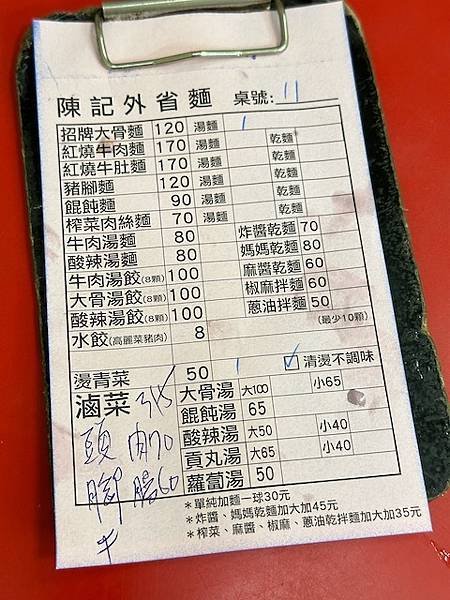 陳記外省麵 桌號: 11
招牌大骨麵 120 湯麵 1
紅燒牛肉麵 170 湯麵 乾麵
紅燒牛肚麵 170 湯麵 乾麵
豬腳麵 120 湯麵 乾麵
餛飩麵 90 湯麵 乾麵
榨菜肉絲麵 70 湯麵 乾麵
牛肉湯麵 80 炸醬乾麵 70
酸辣湯麵 80 媽媽乾麵 80
牛肉湯餃(8顆) 100 麻醬乾麵 60
大骨湯餃(8顆) 100 椒麻拌麵 60
酸辣湯餃(8顆) 100 蔥油拌麵 50
水餃(高麗菜豬肉) 8 (最少10顆)
燙青菜 50 1 ☑ 清燙不調味
滷菜 315 大骨湯 大100 小65
餛飩湯 65
頭 肉70 酸辣湯 大50 小40
貢丸湯 大65 小40
腳 腸60 蘿蔔湯 50
*單純加麵一球30元
*炸醬、媽媽乾麵加大加45元
*榨菜、麻醬、椒麻、蔥油乾拌麵加大加35元